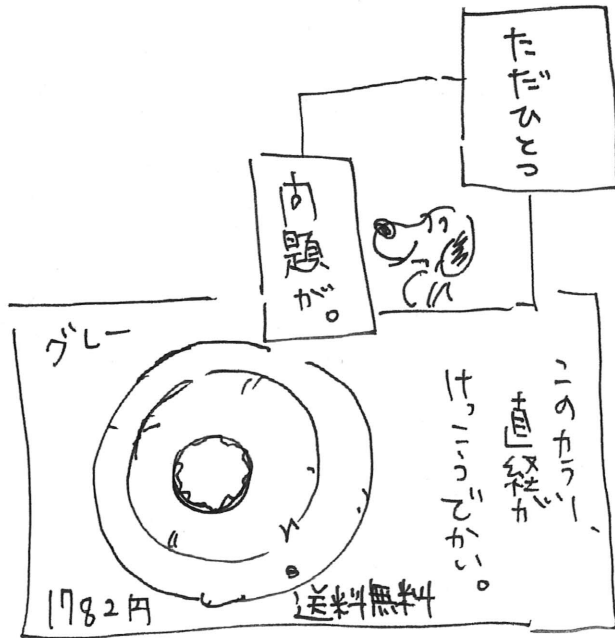 ただひとつ
問題が。
このカラー、
直経が
けっこうでかい。
グレー
1782円
送料無料